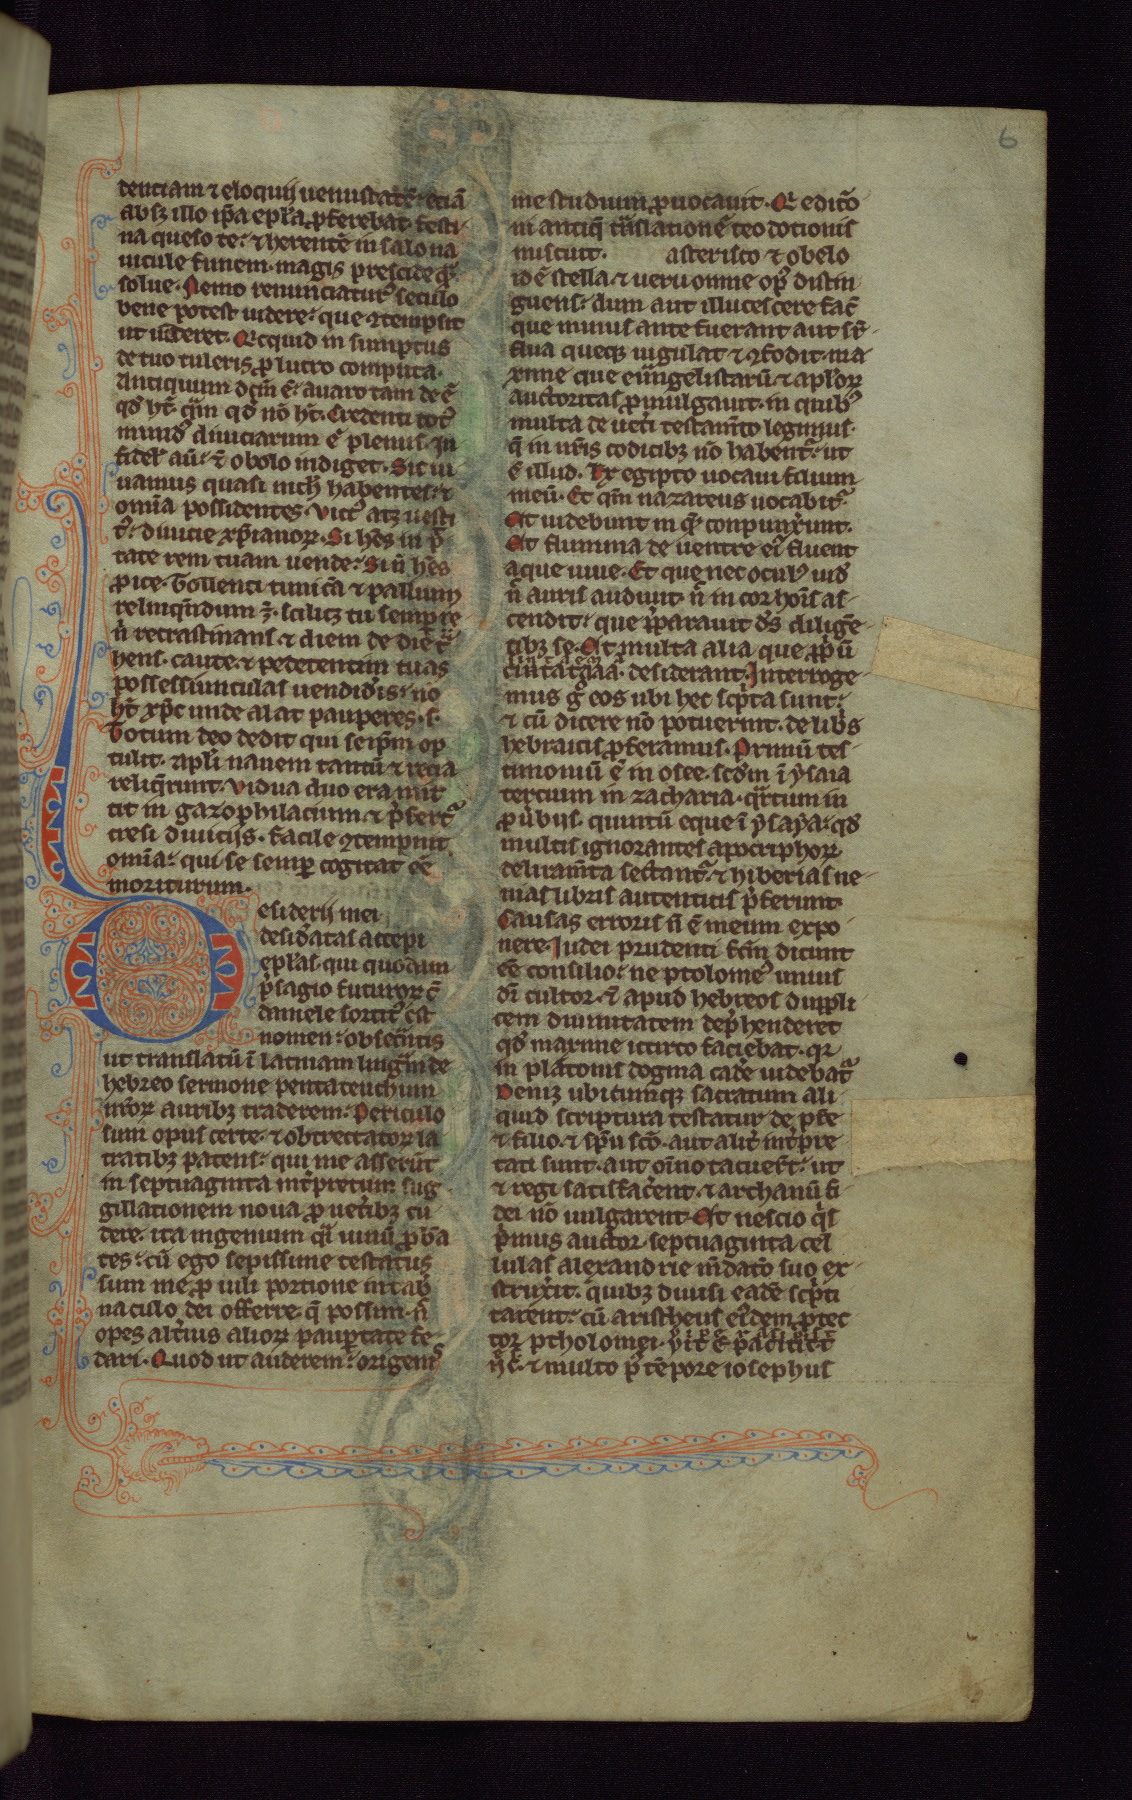 6
dentiam ⁊ eloquij uenustatē· etiā
absꝫ illo ip̄a ep̄la p̄ferebat. festi
na queso te· ⁊ herente in salo na
uicule funem· magis prescide qͣ̄
solue. Nemo renunciaturꝰ seculo
bene potest uidere· que ꝯtempsit
ut uideret. Qicquid in sumptus
de tuo tuleris ꝓ lucro computa.
Antiquum dc̄m ē· auaro tam de ē
qd̄ ht̄ qͣm qd̄ nō ht̄. Credenti totꝰ
mundꝰ diuiciarum ē plenus. In
fidel' aū· ⁊ obolo indiget. Sic ui
uamus quasi nich' habentes· ⁊
omīa possidentes. Victꝰ atꝫ uesti
tꝰ· diuicie xp̄ianoꝝ. Si hēs in p̄
tate rem tuam uende· Si n̄ hēs
ꝓice. Tollenti tunicā ⁊ pallium
relinquendum ē. scilicꝫ tu semp re
n̄ recrastinans ⁊ diem de die tͣ
hens. caute ⁊ pedetentim tuas
possessiunculas uendideris· nō
ht̄ xp̄c unde alat pauperes. s.
Totum deo dedit qui seip̄m op
tulit. apl'i nauem tantū ⁊ recia
reliqͥrunt. Vidua duo era mit
tit in gazophilacium ⁊ p̄fertꝰ
cresi diuicijs. facile ꝯtempnit
omīa· qui se semꝑ cogitat eē
moriturum.
Desiderij mei
desid̄atas accepi
ep̄las. qui quodam
p̄sagio futuroꝝ cū
daniele sortitꝰ est
nomen· obsecrantis
ut translatū ī latinam linguam de
hebreo sermone pentateuchum
nr̄oꝝ auribꝫ traderem. Periculo
sum opus certe· ⁊ obtrectatoꝝ la
tratibꝫ patens· qui me asserūt
in septuaginta int̄pretum sug
gillationem noua ꝓ uet̄ibꝫ cu
dere· ita ingenium qͣsi uinū ꝓba
tes· cū ego sepissime testatus
sum me ꝓ uili portione in tab̄
naculo dei offerre q̄ possim· n̄
opes alt̄ius alioꝝ paup̄tate fe
dari. Quod ut auderem· origenis
me studium ꝓuocauit. Qi editōi
ni antiqͥ trāslationē teodotionis
miscuit. asterisco ⁊ obelo
id ē stella ⁊ ueru omne opꝰ distin
guens· dum aut illucescere fac̄
que minus ante fuerant aut su
flua queqꝫ iugulat ⁊ ꝯfodit· ma
xime que euangelistarū ⁊ aploꝝ
auctoritas ꝓmulgauit. in quibꝰ
multa de uet̄i testam̄to legimus·
q̄ in nr̄is codicibꝫ nō habentꝰ· ut
ē illud. Ex egipto uocaui filium
meū. Et qm̄ nazareus uocabitꝰ.
Et uidebunt in qͣ conpunxerunt.
Et flumina de uentre eiꝰ fluent
aque uiue. Et que nec oculꝰ uid̄
n̄ auris audiuit. n̄ in cor hoīs as
cendit· que p̄parauit dc̄s diligē
tibꝫ se. Et multa alia que ꝓp̄ū
desiderant. Interroge
mus g̊ eos ubi hec sc̄pta sunt·
⁊ cū dicere nō potuerint. de libris
hebraicis ꝓferamus. Primū tes
timoniū ē in osee. scd̄m ī ysaia
tercium in zacharia. qͣrtum in
ꝓu̅bijs. quintū eque ī ysaya· qd̄
multi ignorantes apocriphoꝝ
deliram̄ta sectantꝰ ⁊ hiberias ne
nias libris autenticis p̄ferunt.
Causas erroris n̄ ē meum expo
nere. Iudei prudenti fcm̄ dicunt
eē consilio· ne ptolomeꝰ unius
dī cultor. ⁊ apud hebreos duppli
cem diuinitatem dep̄henderet
qd̄ maxime iccirco faciebat. qꝛ
in platonis dogma cade uidebatꝰ.
Deniqꝫ ubicumqꝫ sacratum ali
quid scriptura testatur de pr̄e
⁊ filio ⁊ sp̄u sc̄o. aut alit̄ int̄pre
tati sunt. aut oīno tacuert̄· ut
⁊ regi satisfac̄ent. ⁊ archanū fi
dei nō uulgarent. Et nescio qͥs
p̄mus auctor septuaginta cel
lulas alexandrie m̄dacio suo ex
struxit. quibꝫ diuisi eadē sc̄pti
tarent. cū aristheus eiꝰdem ptec
toꝝ ptholomei.
⁊ multo p̄ tēpore iosephus